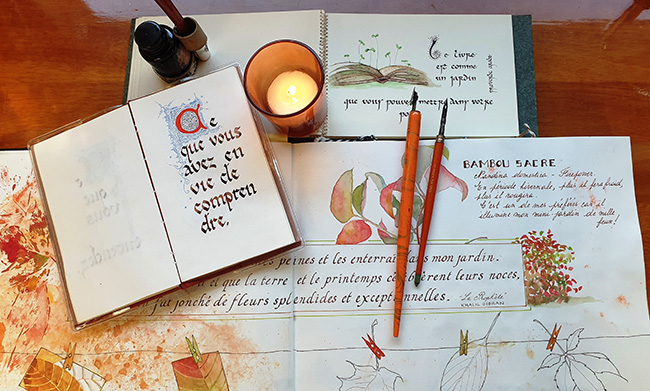 Ce
que vous
avez en
vie de
compren
dre.
Le livre
est comme
un jardin
proverbe arabe
que vous pouvez mettre dans votre
BAMBOU SACRE
Nandina domestica -
En période hivernale, plus il fera froid,
plus il rougira.
C'est un de mes préférés car il
illumine mon mini-jardin de mille
feux!
peines et les enterrai dans mon jardin.
et que la terre et le printemps célébrèrent leurs noces,
fut jonché de fleurs splendides et exceptionnelles.
"Le Prophète"
KHALIL GIBRAN